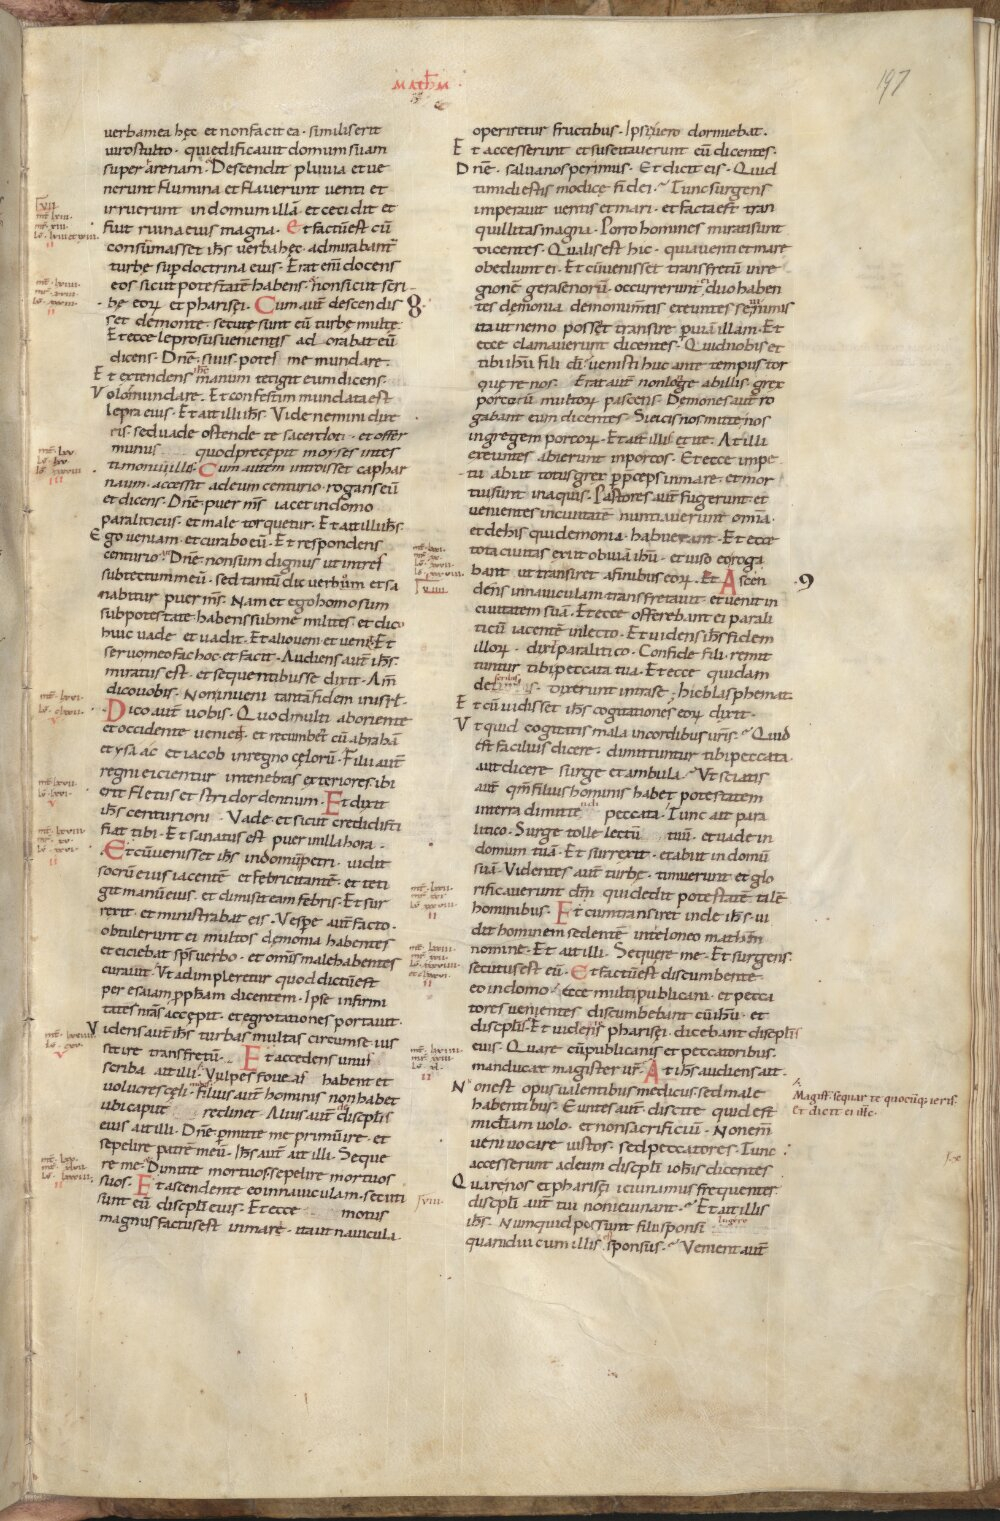 MATHM
197
verba mea hęc et non facit ea · similis erit
viro stulto · qui edificavit domum suam
super arenam · Descendit pluvia et ve
nerunt flumina et flaverunt venti et
irruerunt in domum illā et cecidit et
fuit ruina eius magna · Et factū est cū
consūmasset ih̄s verba hęc · admirabant̄
turbę sup doctrina eius · Erat em̄ docens
eos sicut potestatē habens · non sicut scri
bę eoꝝ et pharisęi · Cum aut̄ descendis
set de monte · secutę sunt eū turbę multę ·
Et ecce leprosus veniens adorabat eū
dicens · Dn̄e · si vis · potes me mundare ·
Et extendens ih̄c manum tetigit eum dicens ·
Volo mundare · Et confestim mundata est
lepra eius · Et ait illi ih̄s · Vide nemini dixe
ris · sed vade ostende te sacerdoti · et offer
munus quod precepit moyses in tes
timoniū illis · Cum autem introisset caphar
naum · accessit ad eum centurio · rogans eū
et dicens · Dn̄e · puer m̄s iacet in domo
paraliticus · et male torquetur · Et ait illi ih̄s ·
Ego veniam et curabo eū · Et respondens
centurio · Dn̄e non sum dignus ut intres
sub tectum meū · sed tantū dic verbum et sa
nabitur puer m̄s · Nam et ego homo sum
sub potestate habens sub me milites · et dico
huic vade et vadit · Et alio veni et venit · Et
servo meo fac hoc · et facit · Audiens aut̄ ih̄s ·
miratus est · et sequentibus se dixit · Am̄
dico vobis · Non inveni tantā fidem in isrl̄ ·
Dico aut̄ vobis · Quod multi ab oriente
et occidente venient · et recumbēt cū abrahā
et ysaac et iacob in regno cęlorū · Filii aut̄
regni eicientur in tenebras exteriores · ibi
erit fletus et stridor dentium · Et dixit
ih̄s centurioni · Vade · et sicut credidisti
fiat tibi · Et sanatus est puer in illa hora ·
Et cū venisset ih̄s in domū petri · vidit
socrū eius iacentē et febricitantē · et teti
git manū eius · et dimisit eam febris · Et sur
rexit · et ministrabat eis · Vespe aut̄ facto ·
obtulerunt ei multos demonia habentes
et eiciebat sps̄ verbo · et omīs male habentes
curavit · Ut adimpleretur quod dictū est
per esaiam pp̄ham dicentem · Ipse infirmi
tates nr̄as accępit · et egrotationes portavit ·
Videns aut̄ ih̄s turbas multas circum se · ius
sit ire transfretū · Et accedens unus
scriba ait illi · Vulpes foveas habent et
volucres cęli · Filius aut̄ hominis non habet
ubi caput reclinet · Alius aut̄ discipl̄is
eius ait illi · Dn̄e · pmitte me primū ire · et
sepelire patrē meū · Ih̄s aut̄ ait illi · Seque
re me · Dimitte mortuos · sepelire mortuos
suos · Et ascendente eo in naviculam · secuti
sunt eū discipl̄i eius · Et ecce motus
magnus factus est in mare · ita ut navicula
8
operiretur fluctibus · Ipse vero dormiebat ·
Et accesserunt et suscitaverunt eū dicentes ·
Dn̄e · salva nos perimus · Et dicit eis · Quid
timidi estis modice fidei · Tunc surgens
imperavit ventis et mari · et facta est tran
quillitas magna · Porro homines mirati sunt
dicentes · Qualis est hic · quia venti et mare
obediunt ei · Et cū venisset transfretū in re
gionē gerasenorū · occurrerunt ei duo haben
tes demonia de monumtīs exeuntes sęvi nimis
ita ut nemo posset transire p viā illam · Et
ecce clamaverunt dicentes · Quid nobis et
tibi ih̄u fili dī · venisti huc ante tempus tor
quere nos · Erat aut̄ non longe ab illis · grex
porcorū multoꝝ pascens · Demones aut̄ ro
gabant eum dicentes · Si eicis nos mitte nos
in gregem porcoꝝ · Et ait illis · et ite · At illi
exeuntes abierunt in porcos · Et ecce impe
tu abiit totus grex p pceps in mare · et mor
tui sunt in aquis · Pastores aut̄ fugerunt · et
venientes in civitatē nuntiaverunt omīa ·
et de his qui demonia habuerant · Et ecce
tota civitas exiit obviā ih̄u · et viso eo roga
bant ut transiret a finibus eoꝝ · Et Ascen
dens in naviculam transfretavit · et venit in
civitatem suā · Et ecce offerebant ei parali
ticū iacentē in lecto · Et videns ih̄s fidem
illoꝝ · dix̄ paralitico · Confide fili · remit
tuntur tibi peccata tua · Et ecce quidam
de scribis · dixerunt intra se · hic blasphemat ·
Et cū vidisset ih̄s cogitationes eoꝝ dixit ·
Ut quid cogitatis mala in cordibus vr̄is · Quid
est facilius dicere · dimittuntur tibi peccata ·
aut dicere surge et ambula · Ut sciatis
aut̄ qm̄ filius hominis habet potestatem
in terra dimittendi peccata · Tunc ait para
litico · Surge tolle lectū tuū · et vade in
domum tuā · Et surrexit · et abiit in domū
suā · Videntes aut̄ turbę · timuerunt et glo
rificaverunt dm̄ qui dedit potestatē talē
hominibus · Et cum transiret inde ih̄s · vi
dit hominem sedentē in teloneo mathm̄
nomine · Et ait illi · Sequere me · Et surgens ·
secutus est eū · Et factū est discumbente
eo in domo · ecce multi publicani · et pecca
tores venientes discumbebant cū ih̄u · et
discipl̄is · Et videns pharisęi · dicebant discipl̄is
eius · Quare cū publicanis et peccatoribus ·
manducat magister vr̄ · At ih̄s audiens ait ·
Non est opus valentibus medicus · sed male
habentibus · Euntes aut̄ · discite quid est
mīcdiam volo · et non sacrificiū · Non em̄
veni vocare iustos · sed peccatores · Tunc
accesserunt ad eum discipl̄i iohīs dicentes
Quare nos et pharisęi ieiunamus frequenter
discipl̄i aut̄ tui non ieiunant · Et ait illis
ih̄s · Numquid possunt filii sponsi lugere
quamdiu cum illis sponsus · Venient aut̄
9
Magist̄ sequar te quocūq; ieris ·
Et dicit ei ih̄c ·